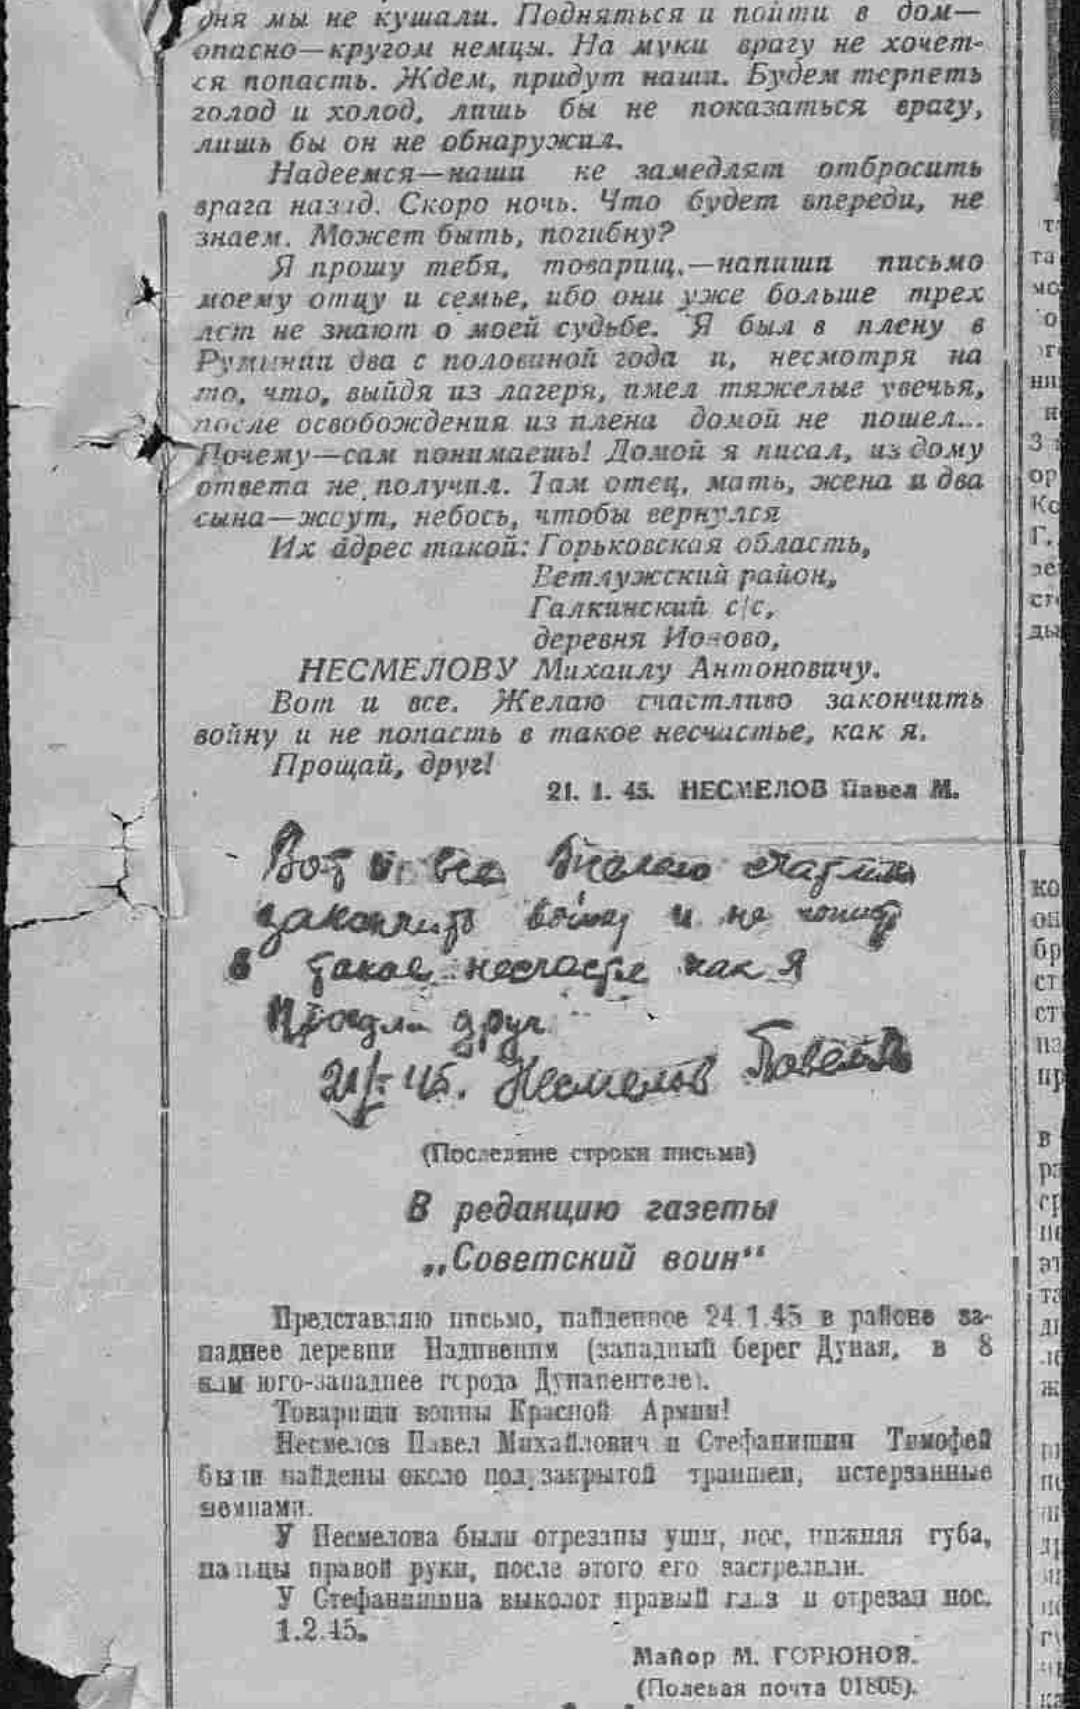 дня мы не кушали. Подняться и пойти в дом—
опасно—кругом немцы. На муки врагу не хочет-
ся попасть. Ждем, придут наши. Будем терпеть
голод и холод, лишь бы не показаться врагу,
лишь бы он не обнаружил.
Надеемся—наши не замедлят отбросить
врага назад. Скоро ночь. Что будет впереди, не
знаем. Может быть, погибну?
Я прошу тебя, товарищ,—напиши письмо
моему отцу и семье, ибо они уже больше трех
лет не знают о моей судьбе. Я был в плену в
Румынии два с половиной года и, несмотря на
то, что, выйдя из лагеря, имел тяжелые увечья,
после освобождения из плена домой не пошел...
Почему—сам понимаешь! Домой я писал, из дому
ответа не получил. Там отец, мать, жена и два
сына—ждут, небось, чтобы вернулся
Их адрес такой: Горьковская область,
Ветлужский район,
Галкинский с/с,
деревня
НЕСМЕЛОВУ Михаилу Антоновичу.
Вот и все. Желаю счастливо закончить
войну и не попасть в такое несчастье, как я.
Прощай, друг!
21. 1. 45. НЕСМЕЛОВ Павел М.
Вот и все Желаю
закончить войну и не
в такое несчастье как я
друг
21/I 45. Несмелов Павел
(Последние строки письма)
В редакцию газеты
„Советский воин“
Представляю письмо, найденное 24.1.45 в районе за-
паднее деревни Надивеним (западный берег Дуная, в 8
клм юго-западнее города Дунапентеле).
Товарищи воины Красной Армии!
Несмелов Павел Михайлович и Стефанишин Тимофей
были найдены около под закрытой траншеи, истерзанные
немцами.
У Несмелова были отрезаны уши, нос, нижняя губа,
пальцы правой руки, после этого его застрелили.
У Стефанишина выколот правый глаз и отрезан нос.
1.2.45.
Майор М. ГОРЮНОВ.
(Полевая почта 01805).